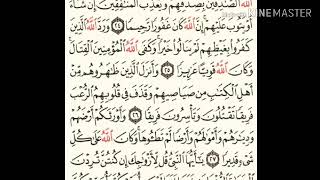 ٱللَّهُ ٱلصَّٰدِقِينَ بِصِدْقِهِمْ وَيُعَذِّبَ ٱلْمُنَٰفِقِينَ إِن شَآءَ
KINEMASTER
أَوْ يَتُوبَ عَلَيْهِمْ إِنَّ ٱللَّهَ كَانَ غَفُورًا رَّحِيمًا ٢٤ وَرَدَّ ٱللَّهُ ٱلَّذِينَ
كَفَرُوا۟ بِغَيْظِهِمْ لَمْ يَنَالُوا۟ خَيْرًا وَكَفَى ٱللَّهُ ٱلْمُؤْمِنِينَ ٱلْقِتَالَ
وَكَانَ ٱللَّهُ قَوِيًّا عَزِيزًا ٢٥ وَأَنزَلَ ٱلَّذِينَ ظَٰهَرُوهُم مِّنْ
أَهْلِ ٱلْكِتَٰبِ مِن صَيَاصِيهِمْ وَقَذَفَ فِى قُلُوبِهِمُ ٱلرُّعْبَ
فَرِيقًا تَقْتُلُونَ وَتَأْسِرُونَ فَرِيقًا ٢٦ وَأَوْرَثَكُمْ أَرْضَهُمْ
وَدِيَٰرَهُمْ وَأَمْوَٰلَهُمْ وَأَرْضًا لَّمْ تَطَـُٔوهَا وَكَانَ ٱللَّهُ عَلَىٰ كُلِّ
شَىْءٍ قَدِيرًا ٢٧ يَٰٓأَيُّهَا ٱلنَّبِىُّ قُل لِّأَزْوَٰجِكَ إِن كُنتُنَّ تُرِدْنَ